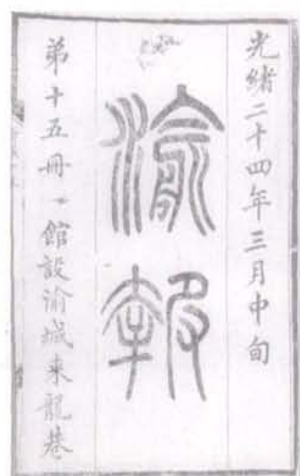 光緒二十四年三月中旬
渝報
弟十五冊 館設渝城來龍巷